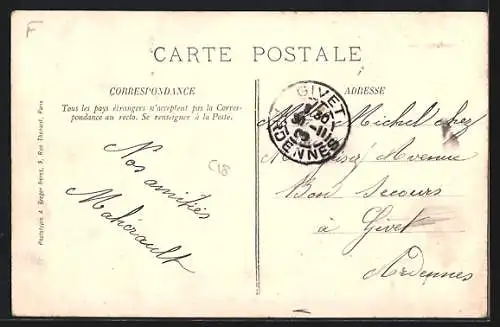 F
CARTE POSTALE
CORRESPONDANCE
Tous les pays étrangers n'acceptent pas la Corres-
pondance au recto. Se renseigner à la Poste.
Nos amitiés
Mahérault
C18
Phototypie A. Breger Frères, 9, Rue Thénard, Paris
ADRESSE
GIVET
ARDENNES
M Michel chez
Avenue
Bon Secours
à Givet
Ardennes